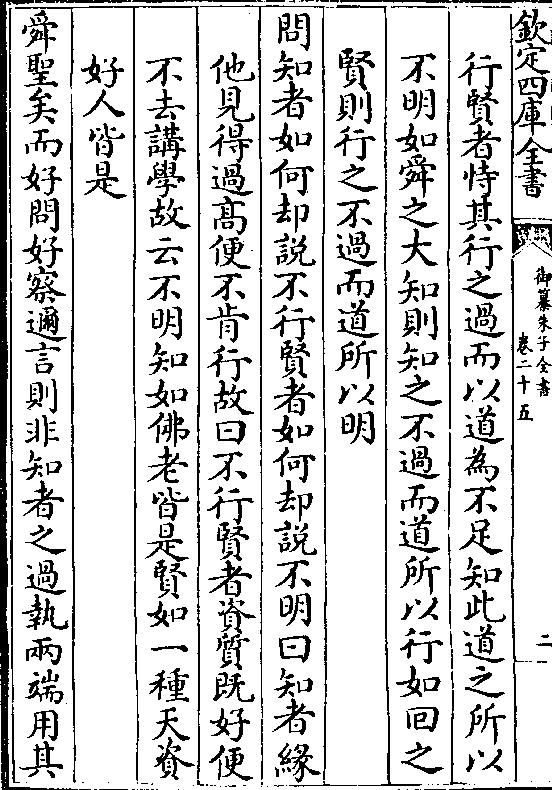 欽定四庫全書
御纂朱子全書
卷二十五
二
行賢者恃其行之過而以道為不足知此道之所以
不明如舜之大知則知之不過而道所以行如回之
賢則行之不過而道所以明
問知者如何却說不行賢者如何却說不明曰知者緣
他見得過髙便不肯行故曰不行賢者資質既好便
不去講學故云不明知如佛老皆是賢如一種天資
好人皆是
舜聖矣而好問好察邇言則非知者之過執兩端用其